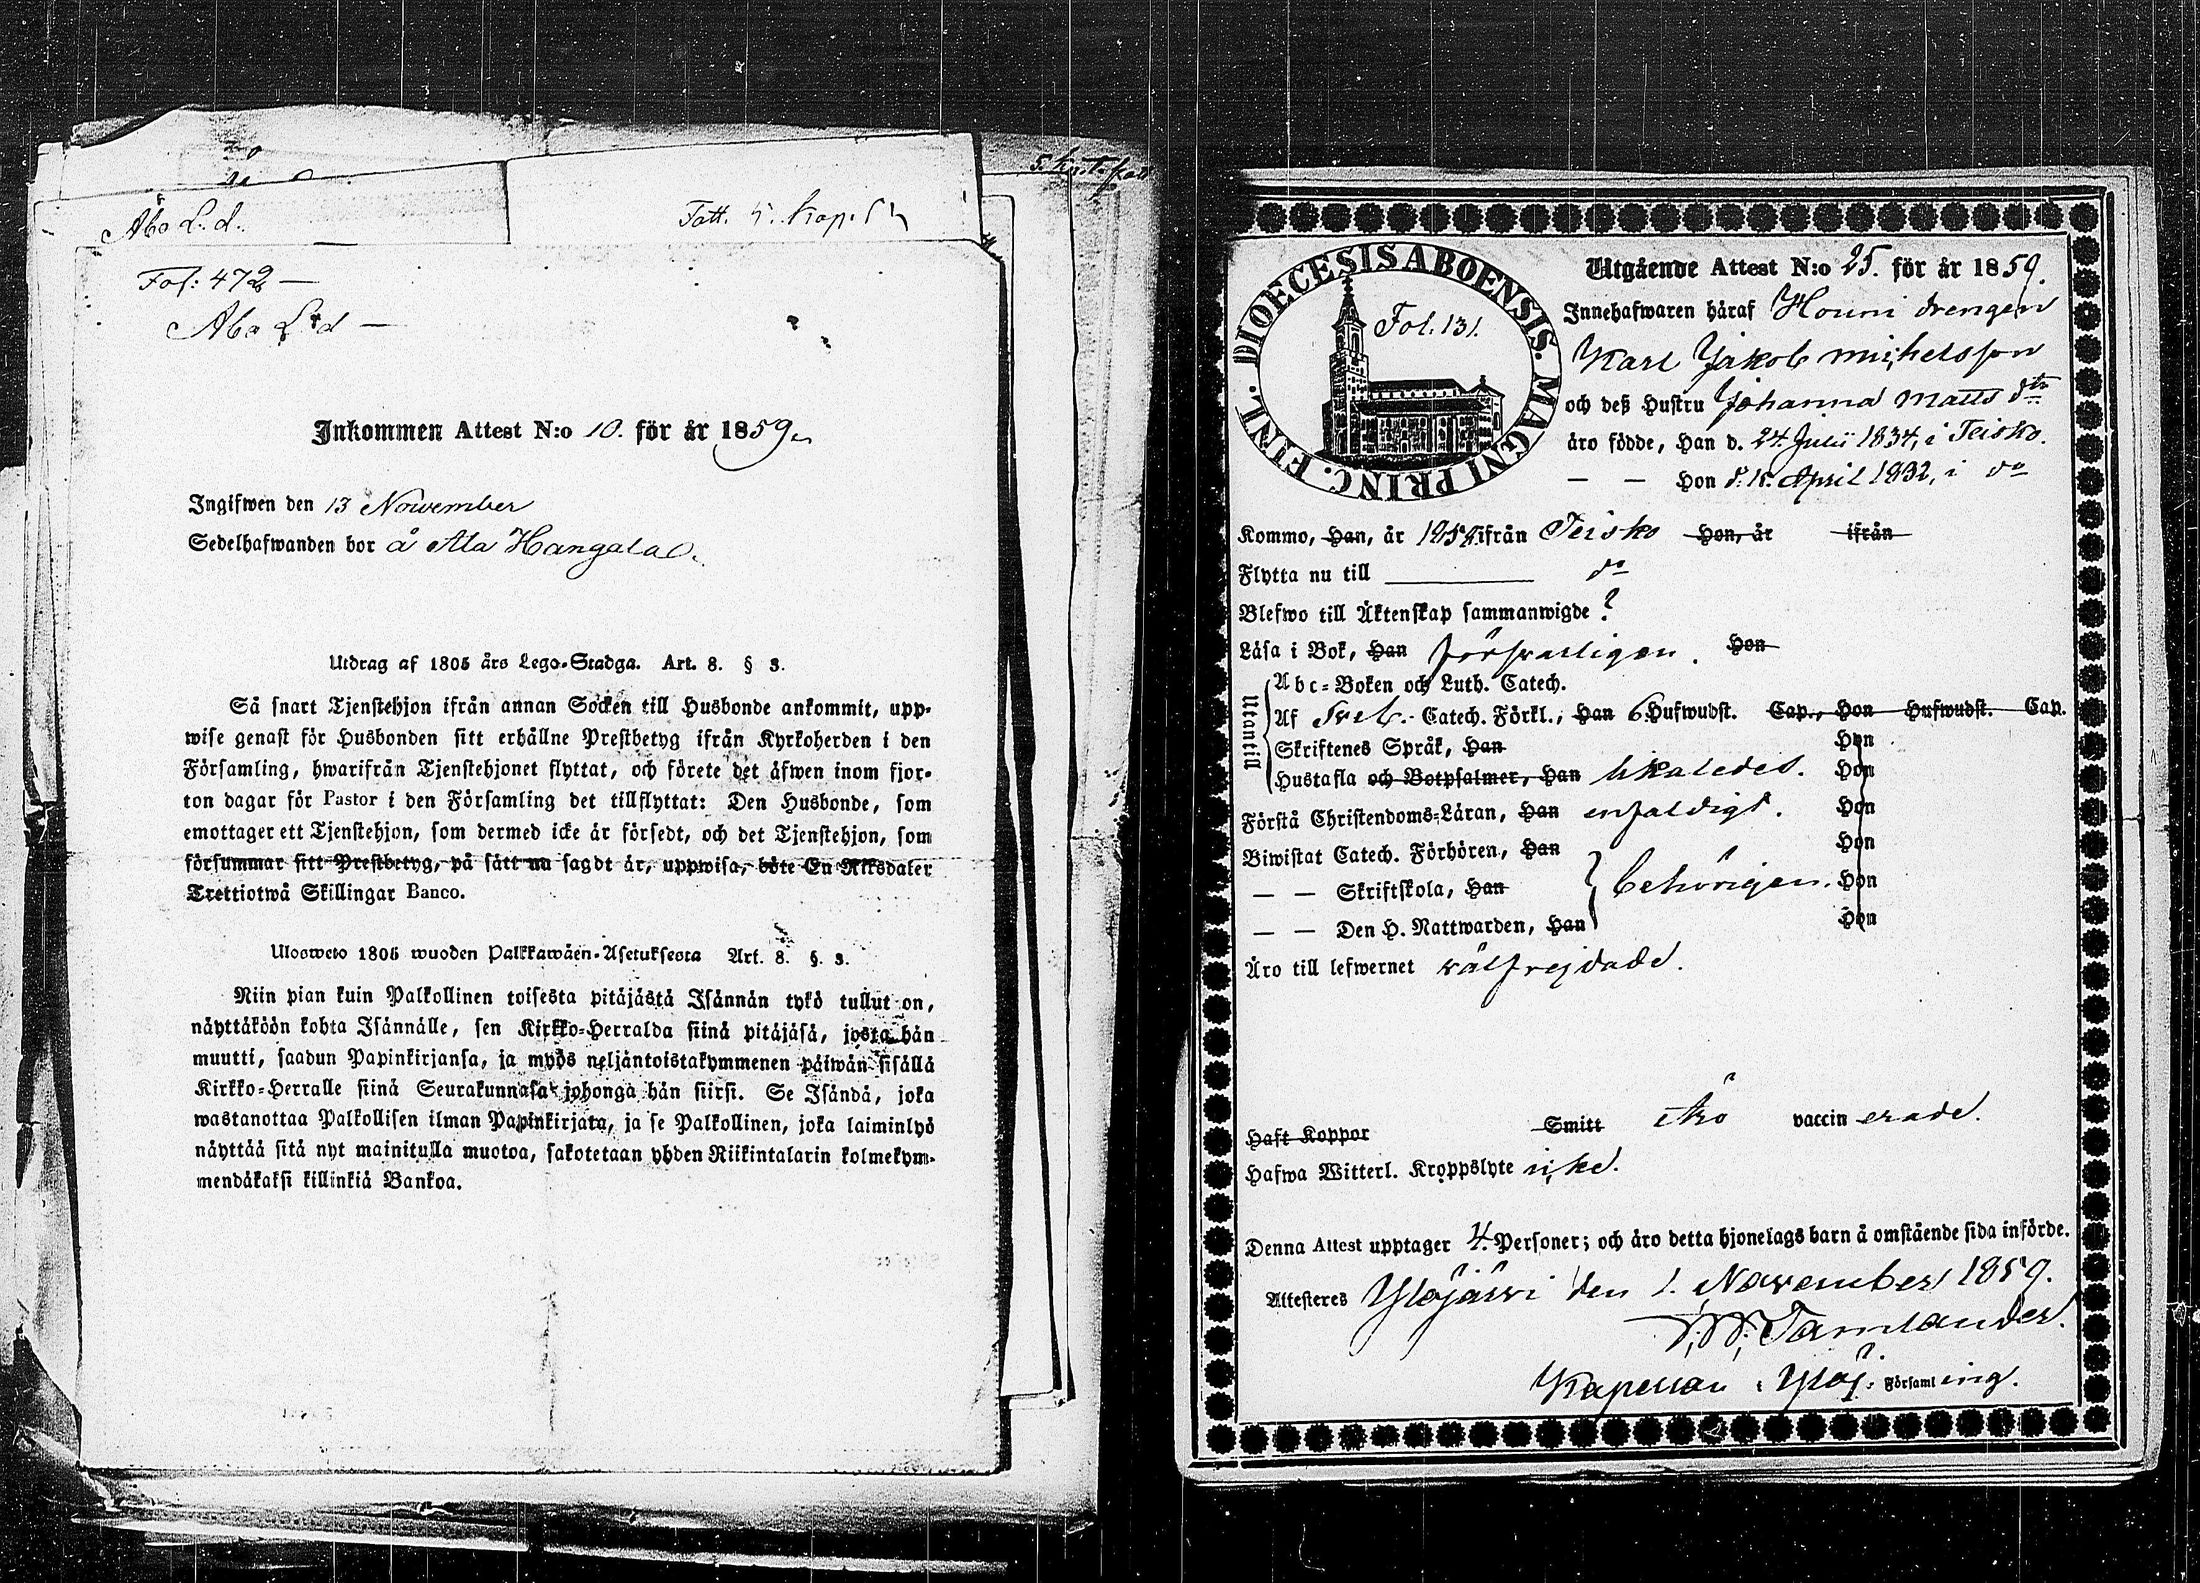 Åbo L. d.
Fol: 472 —
Åbo L d —
Inkommen Attest N:o 10. för år 1859.
Ingifwen den 13 November
Sedelhafwanden bor å Ala Hangala
Utdrag af 1805 års Lego-Stadga. Art. 8. § 3.
Så snart Tjenstehjon ifrån annan Socken till Husbonde ankommit, upp-
wise genast för Husbonden sitt erhållne Prestbetyg ifrån Kyrkoherden i den
Församling, hwarifrån Tjenstehjonet flyttat, och förete det äfwen inom fjor-
ton dagar för Pastor i den Församling det tillflyttat: Den Husbonde, som
emottager ett Tjenstehjon, som dermed icke är försedt, och det Tjenstehjon, som
försummar sitt Prestbetyg, på sätt nu sagdt är, uppwisa, böte En Riksdaler
Trettiotwå Skillingar Banco.
Ulosweto 1805 wuoden Palkkawäen-Asetuksesta Art. 8. §. 3.
Niin pian kuin Palkollinen toisesta pitäjästä Isännän tykö tullut on,
näyttäköön kohta Isännälle, sen Kirkko-Herralda siinä pitäjäsä, josta hän
muutti, saadun Papinkirjansa, ja myös neljäntoistakymmenen päiwän sisällä
Kirkko-Herralle siinä Seurakunnasa johonga hän siirsi. Se Isändä, joka
wastanottaa Palkollisen ilman Papinkirjata, ja se Palkollinen, joka laiminlyö
näyttää sitä nyt mainitulla muotoa, sakotetaan yhden Riikintalarin kolmekym-
mendäkaksi killinkiä Bankoa.
DIOECESIS ABOENSIS. MAGNI PRINC. FINL.
Fol. 131.
Utgående Attest N:o 25. för år 1859.
Innehafwaren häraf Houni drengen
Karl Jakob Michelsson
och deß Hustru Johanna Matts dtr
äro födde, Han d. 24 Julii 1834, i Teisko.
— — Hon d. 15 April 1832, i do
Kommo, Han, år 1858 ifrån Teisko Hon, år ifrån
Flytta nu till do
Blefwo till Äktenskap sammanwigde ?
Läsa i Bok, Han försvarligen. Hon
Utantill
Abc-Boken och Luth. Catech.
Af Sveb. Catech. Förkl., Han 6 Hufwudst. Cap., Hon Hufwudst. Cap.
Skriftenes Språk, Han Hon
Hustafla och Botpsalmer, Han likaledes. Hon
Förstå Christendoms-Läran, Han enfaldigt. Hon
Biwistat Catech. Förhören, Han Hon
— — Skriftskola, Han behörigen. Hon
— — Den H. Nattwarden, Han Hon
Äro till lefwernet välfrejdade.
Haft Koppor Smitt äro vaccinerade.
Hafwa Witterl. Kroppslyte icke.
Denna Attest upptager 4 Personer; och äro detta hjonelags barn å omstående sida införde.
Attesteres Ylöjärvi den 1. November 1859.
Tamlander.
Kapellan i Ylöj. Församling.